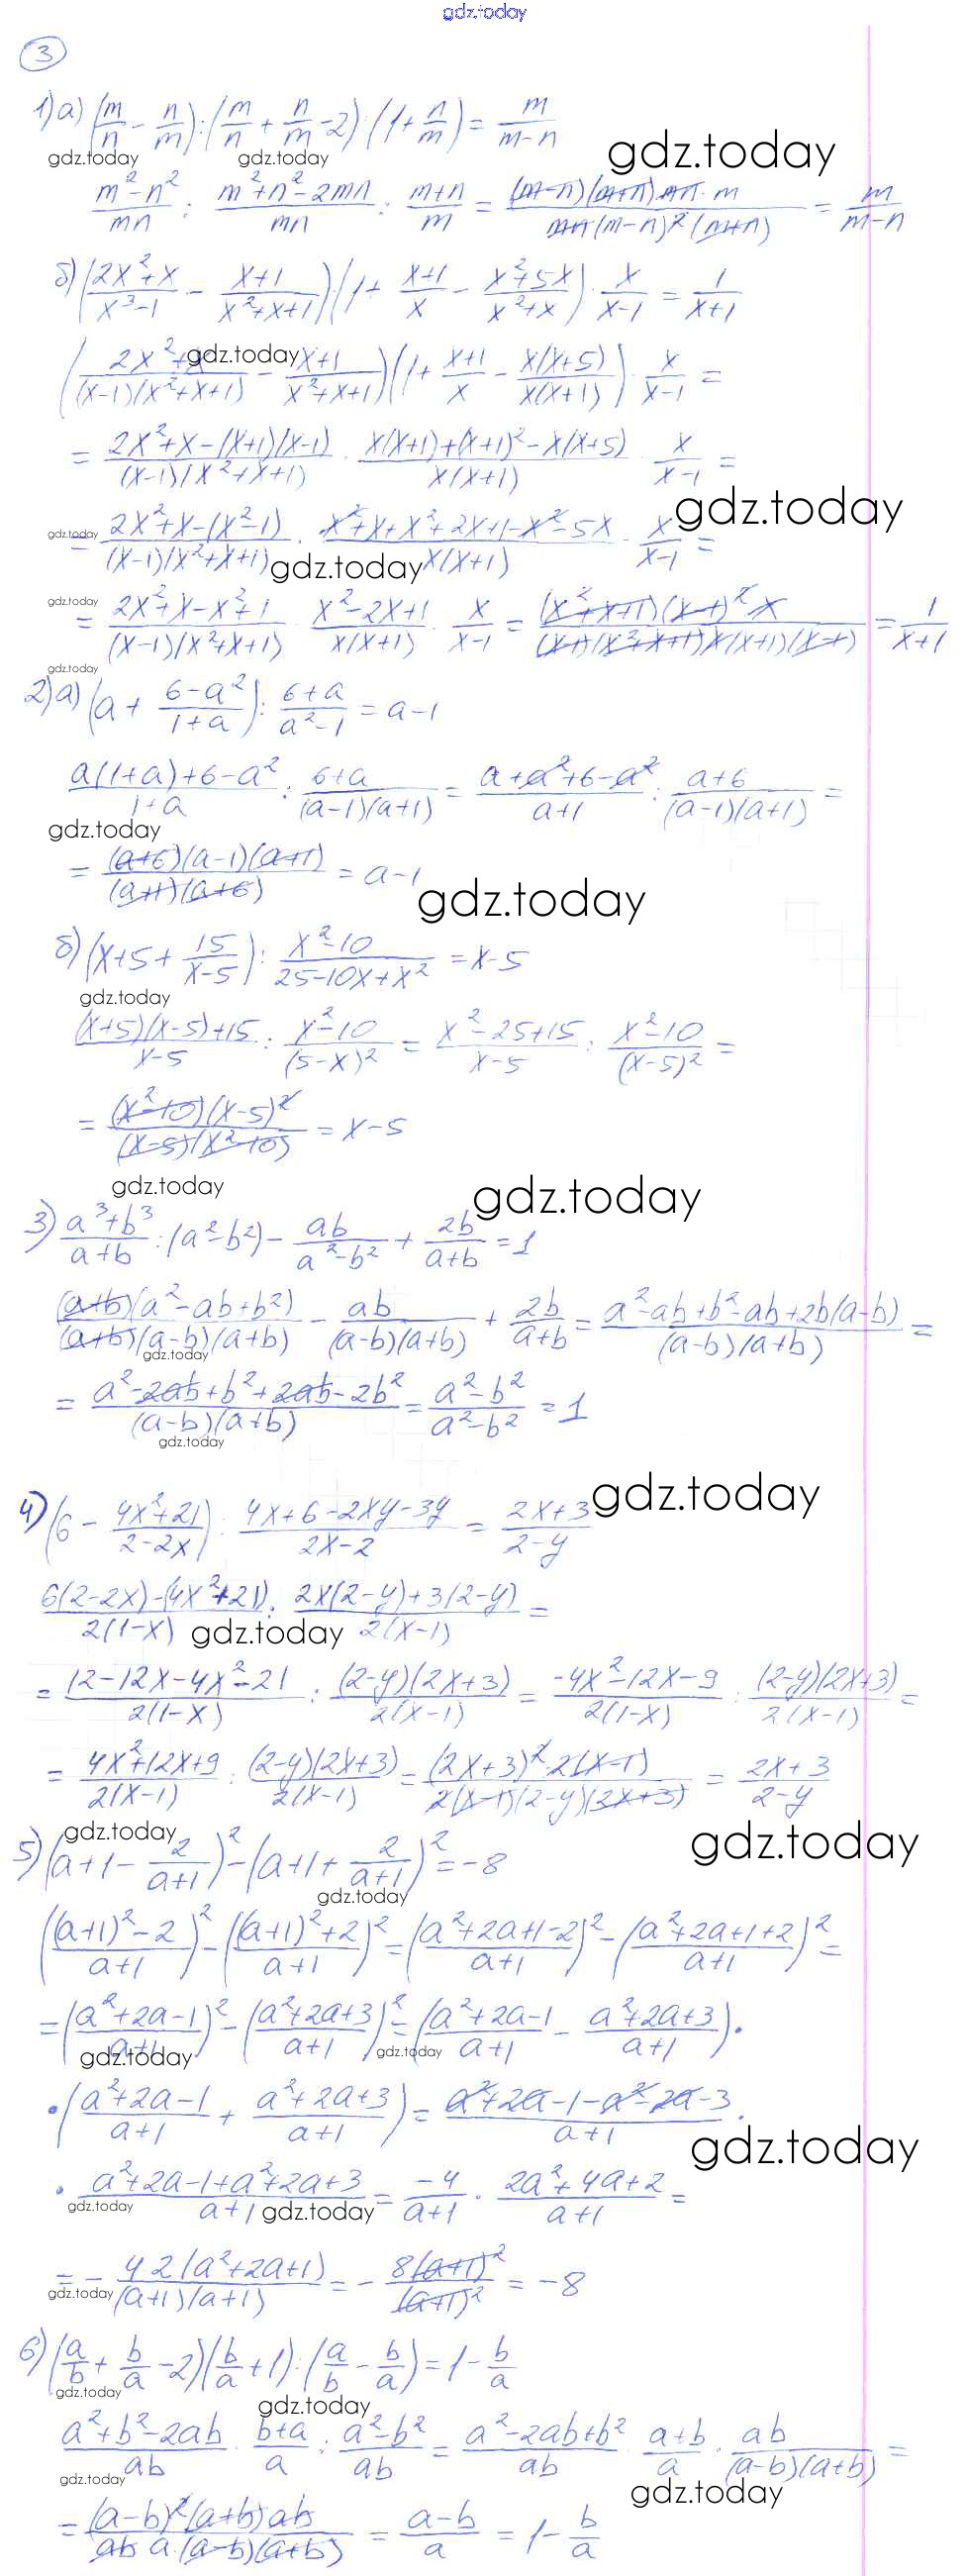 gdz.today
3
1) а) (m/n - n/m) : (m/n + n/m - 2) : (1 + n/m) = m/(m-n)
gdz.today gdz.today gdz.today
(m²-n²)/(mn) : (m²+n²-2mn)/(mn) : (m+n)/m = ((m-n)(m+n)·mn·m)/(mn(m-n)²(m+n)) = m/(m-n)
б) ((2x²+x)/(x³-1) - (x+1)/(x²+x+1))(1 + (x+1)/x - (x²+5x)/(x²+x)) · x/(x-1) = 1/(x+1)
gdz.today
((2x²+x)/((x-1)(x²+x+1)) - (x+1)/(x²+x+1))(1 + (x+1)/x - (x(x+5))/(x(x+1))) · x/(x-1) =
= (2x²+x-(x+1)(x-1))/((x-1)(x²+x+1)) · (x(x+1)+(x+1)²-x(x+5))/(x(x+1)) · x/(x-1) =
gdz.today
gdz.today
= (2x²+x-(x²-1))/((x-1)(x²+x+1)) · (x²+x+x²+2x+1-x²-5x)/(x(x+1)) · x/(x-1) =
gdz.today
gdz.today
= (2x²+x-x²+1)/((x-1)(x²+x+1)) · (x²-2x+1)/(x(x+1)) · x/(x-1) = ((x²+x+1)(x-1)²x)/((x-1)(x²+x+1)x(x+1)(x-1)) = 1/(x+1)
gdz.today
2) а) (a + (6-a²)/(1+a)) : (6+a)/(a²-1) = a-1
(a(1+a)+6-a²)/(1+a) : (6+a)/((a-1)(a+1)) = (a+a²+6-a²)/(a+1) : (a+6)/((a-1)(a+1)) =
gdz.today
= ((a+6)(a-1)(a+1))/((a+1)(a+6)) = a-1
gdz.today
б) (x+5 + 15/(x-5)) : (x²-10)/(25-10x+x²) = x-5
gdz.today
((x+5)(x-5)+15)/(x-5) : (x²-10)/((5-x)²) = (x²-25+15)/(x-5) : (x²-10)/((x-5)²) =
= ((x²-10)(x-5)²)/((x-5)(x²-10)) = x-5
gdz.today gdz.today
3) (a³+b³)/(a+b) : (a²-b²) - ab/(a²-b²) + 2b/(a+b) = 1
((a+b)(a²-ab+b²))/((a+b)(a-b)(a+b)) - ab/((a-b)(a+b)) + 2b/(a+b) = (a²-ab+b²-ab+2b(a-b))/((a-b)(a+b)) =
gdz.today
= (a²-2ab+b²+2ab-2b²)/((a-b)(a+b)) = (a²-b²)/(a²-b²) = 1
gdz.today
gdz.today
4) (6 - (4x²+21)/(2-2x)) : (4x+6-2xy-3y)/(2x-2) = (2x+3)/(2-y)
(6(2-2x)-(4x²+21))/(2(1-x)) : (2x(2-y)+3(2-y))/(2(x-1)) =
gdz.today
= (12-12x-4x²-21)/(2(1-x)) : ((2-y)(2x+3))/(2(x-1)) = (-4x²-12x-9)/(2(1-x)) : ((2-y)(2x+3))/(2(x-1)) =
= (4x²+12x+9)/(2(x-1)) : ((2-y)(2x+3))/(2(x-1)) = ((2x+3)²·2(x-1))/(2(x-1)(2-y)(2x+3)) = (2x+3)/(2-y)
gdz.today gdz.today
5) (a+1 - 2/(a+1))² - (a+1 + 2/(a+1))² = -8
gdz.today
(((a+1)²-2)/(a+1))² - (((a+1)²+2)/(a+1))² = ((a²+2a+1-2)/(a+1))² - ((a²+2a+1+2)/(a+1))² =
= ((a²+2a-1)/(a+1))² - ((a²+2a+3)/(a+1))² = ((a²+2a-1)/(a+1) - (a²+2a+3)/(a+1)) ·
gdz.today gdz.today
· ((a²+2a-1)/(a+1) + (a²+2a+3)/(a+1)) = (a²+2a-1-a²-2a-3)/(a+1) ·
gdz.today
· (a²+2a-1+a²+2a+3)/(a+1) = -4/(a+1) · (2a²+4a+2)/(a+1) =
gdz.today gdz.today
= - (4·2(a²+2a+1))/((a+1)(a+1)) = - (8(a+1)²)/((a+1)²) = -8
gdz.today
6) (a/b + b/a - 2)(b/a + 1) : (a/b - b/a) = 1 - b/a
gdz.today gdz.today
(a²+b²-2ab)/(ab) · (b+a)/a : (a²-b²)/(ab) = (a²-2ab+b²)/(ab) · (a+b)/a · ab/((a-b)(a+b)) =
gdz.today gdz.today
= ((a-b)²(a+b)ab)/(ab·a·(a-b)(a+b)) = (a-b)/a = 1 - b/a